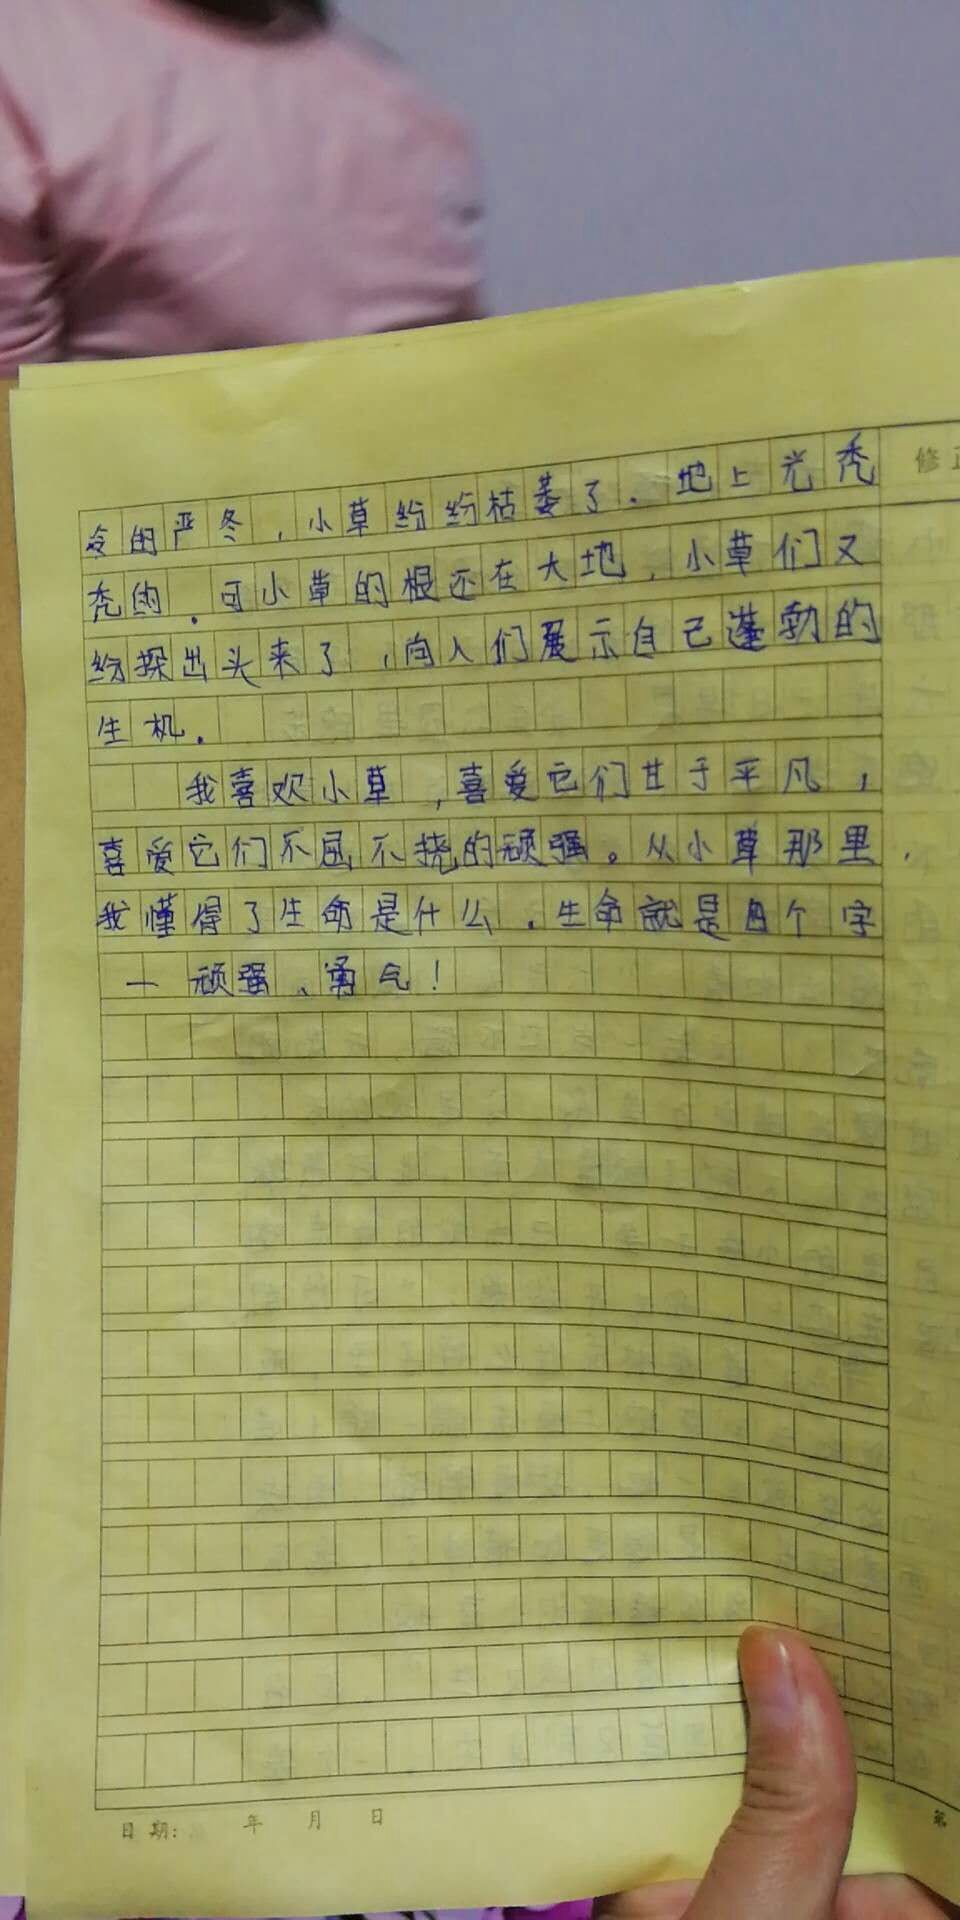 修正
冷的严冬,小草纷纷枯萎了.地上光秃
秃的.可小草的根还在大地,小草们又
纷探出头来了,向人们展示自己蓬勃的
生机.
我喜欢小草,喜爱它们甘于平凡,
喜爱它们不屈不挠的顽强。从小草那里,
我懂得了生命是什么.生命就是四个字
一顽强、勇气!
日期: 年 月 日
第